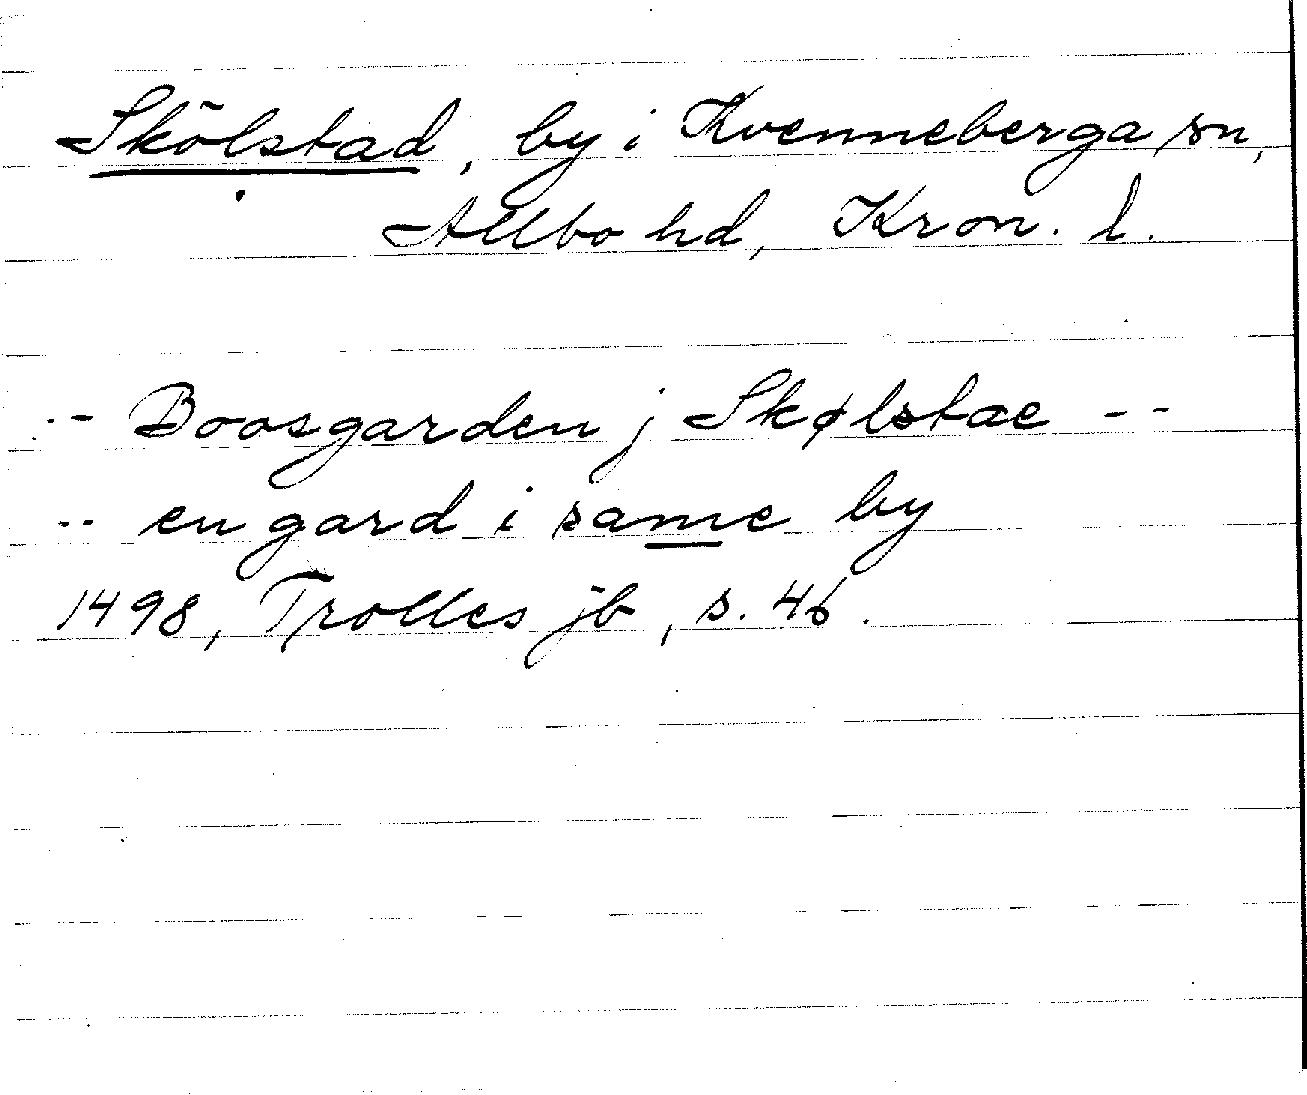 Skölstad, by i Kvenneberga sn,
Allbo hd, Kron. l.
-- Boosgarden j Skølstae --
-- en gard i same by
1498, Trolles jb, s. 46.